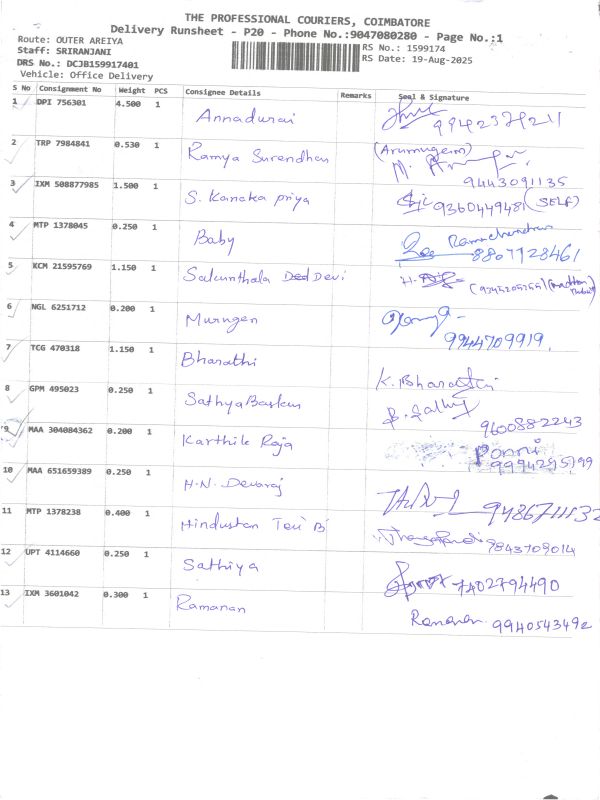 THE PROFESSIONAL COURIERS, COIMBATORE
Delivery Runsheet - P20 - Phone No.:9047080280 - Page No.:1
Route: OUTER AREIYA
RS No.: 1599174
Staff: SRIRANJANI
RS Date: 19-Aug-2025
DRS No.: DCJB159917401
Vehicle: Office Delivery
S No Consignment No Weight PCS Consignee Details Remarks Seal & Signature
1 DPI 756301 4.500 1 Annadurai 9942372211
2 TRP 7984841 0.530 1 Ramya Surendhan (Arumugam)
9443091135
3 IXM 508877985 1.500 1 S. Kanaka priya 9360449481 (SELF)
4 MTP 1378045 0.250 1 Baby Ramachandran
8807728461
5 KCM 21595769 1.150 1 Sakunthala Devi
6 NGL 6251712 0.200 1 Murugen
9944709919
7 TCG 470318 1.150 1 Bharathi K. Bharathi
8 GPM 495023 0.250 1 Sathya Baskan
9600882243
9 MAA 304084362 0.200 1 Karthik Raja Ponni
9994295199
10 MAA 651659389 0.250 1 H.N. Devaraj
9486711132
11 MTP 1378238 0.400 1 Hindustan
9843709014
12 UPT 4114660 0.250 1 Sathiya
7402794490
13 IXM 3601042 0.300 1 Ramanan Ramanan 9940543492